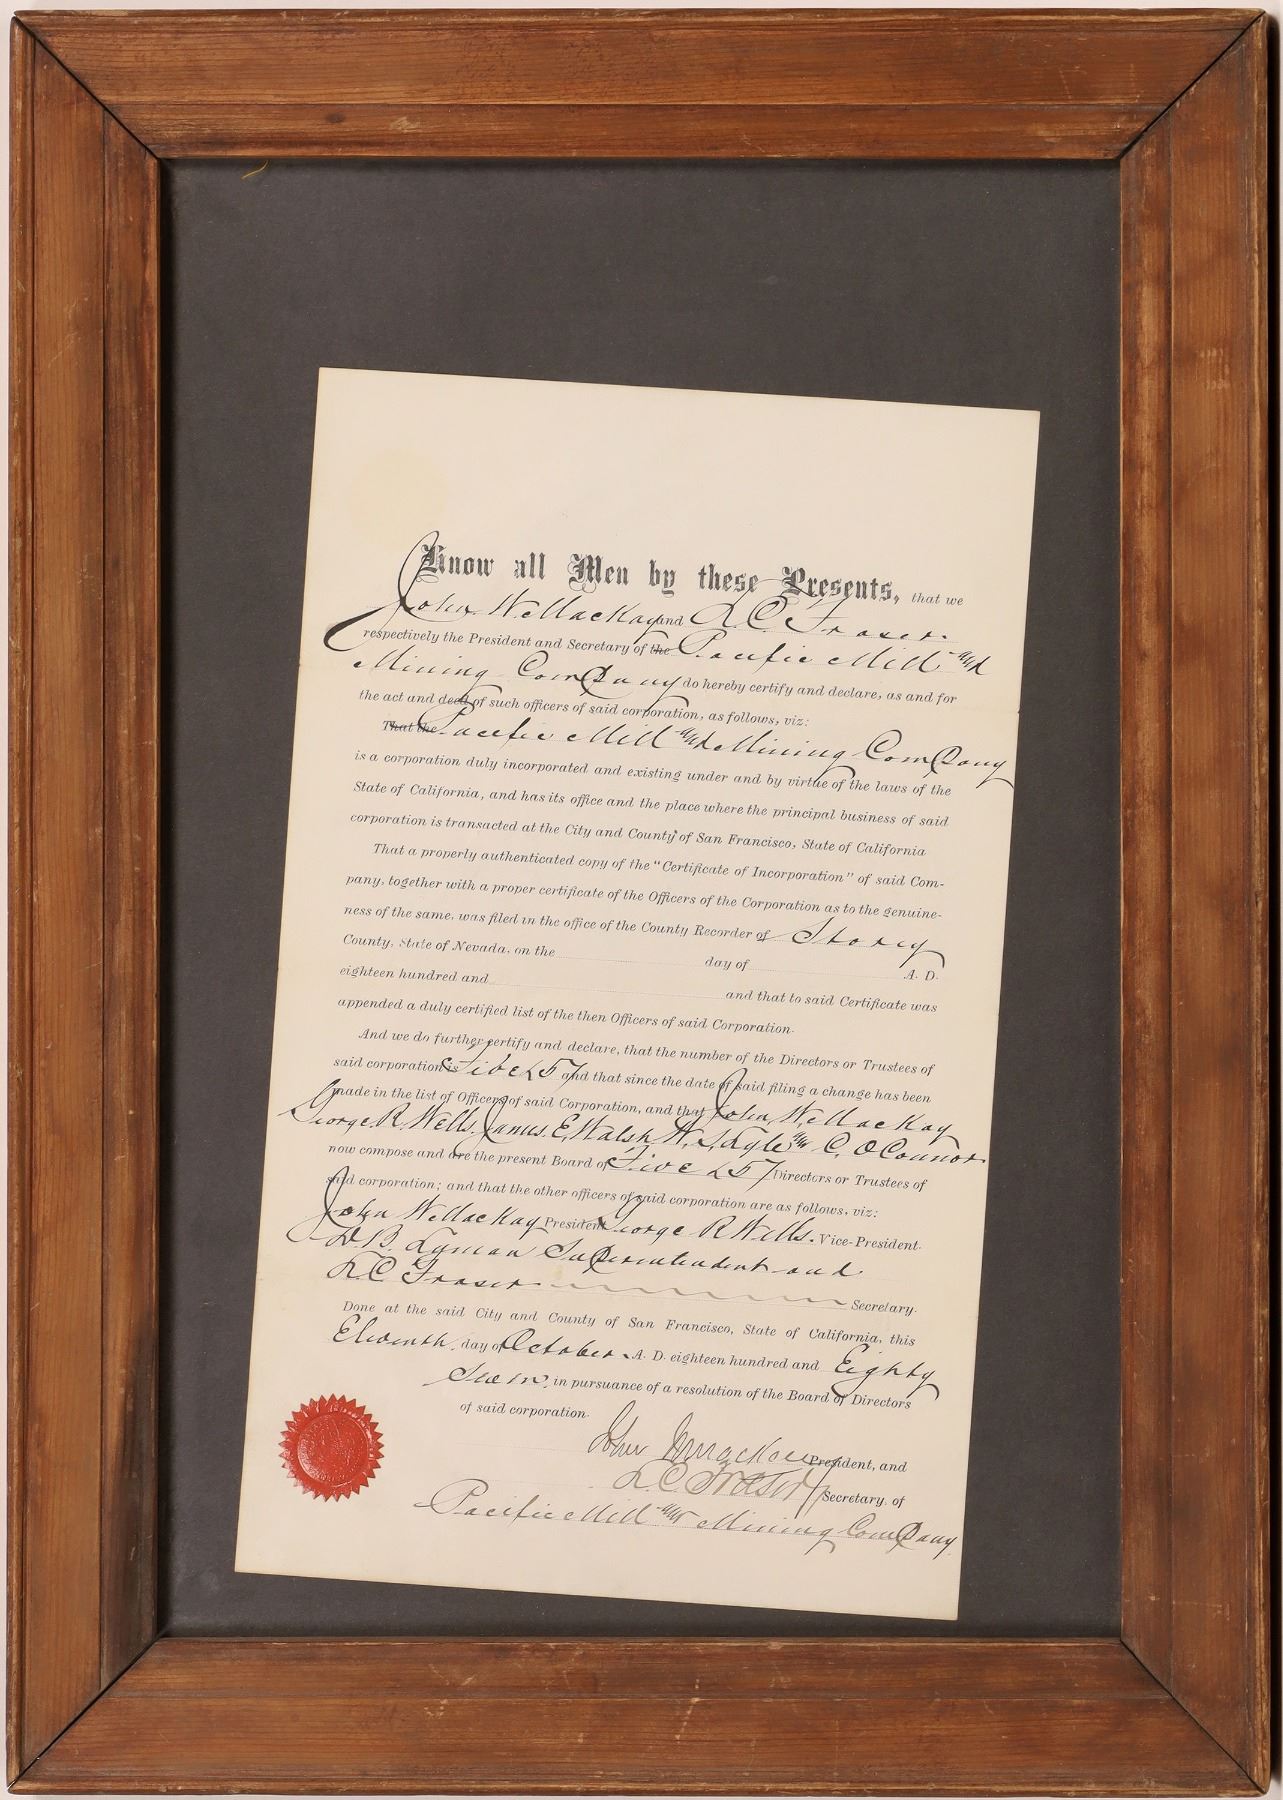 Know all Men by these Presents, that we
John W. Mackay and A. C. Fraser.
respectively the President and Secretary of the Pacific Mill and
Mining Company do hereby certify and declare, as and for
the act and deed of such officers of said corporation, as follows, viz:
That the Pacific Mill and Mining Company
is a corporation duly incorporated and existing under and by virtue of the laws of the
State of California, and has its office and the place where the principal business of said
corporation is transacted at the City and County of San Francisco, State of California
That a properly authenticated copy of the "Certificate of Incorporation" of said Com-
pany, together with a proper certificate of the Officers of the Corporation as to the genuine-
ness of the same, was filed in the office of the County Recorder of Storey
County, State of Nevada, on the day of A. D.
eighteen hundred and and that to said Certificate was
appended a duly certified list of the then Officers of said Corporation.
And we do further certify and declare, that the number of the Directors or Trustees of
said corporation is Five (5) and that since the date of said filing a change has been
made in the list of Officers of said Corporation, and that John W. Mackay
George R. Wells, James E. Walsh, W. S. Lyle and C. O'Connor
now compose and are the present Board of Five (5) Directors or Trustees of
said corporation; and that the other officers of said corporation are as follows, viz:
John W. Mackay President George R. Wells. Vice-President.
D. B. Lyman Superintendent and
A. C. Fraser Secretary.
Done at the said City and County of San Francisco, State of California, this
Eleventh day of October A. D. eighteen hundred and Eighty
Seven, in pursuance of a resolution of the Board of Directors
of said corporation.
John W Mackay President, and
A. C. Fraser Secretary of
Pacific Mill and Mining Company